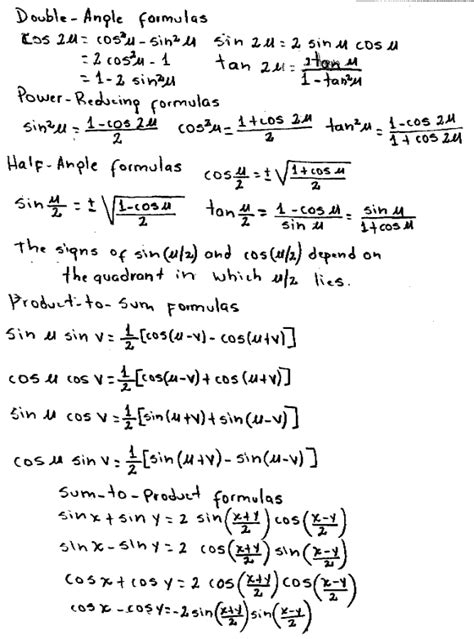 Double-Angle formulas
cos 2u = cos²u - sin²u   sin 2u = 2 sin u cos u
= 2 cos²u - 1   tan 2u = 2tan u / 1 - tan²u
= 1 - 2 sin²u
Power-Reducing formulas
sin²u = 1 - cos 2u / 2   cos²u = 1 + cos 2u / 2   tan²u = 1 - cos 2u / 1 + cos 2u
Half-Angle formulas   cos u/2 = ± √(1 + cos u / 2)
sin u/2 = ± √(1 - cos u / 2)   tan u/2 = 1 - cos u / sin u = sin u / 1 + cos u
the signs of sin(u/2) and cos(u/2) depend on
the quadrant in which u/2 lies.
Product-to-Sum formulas
sin u sin v = 1/2 [cos(u-v) - cos(u+v)]
cos u cos v = 1/2 [cos(u-v) + cos(u+v)]
sin u cos v = 1/2 [sin(u+v) + sin(u-v)]
cos u sin v = 1/2 [sin(u+v) - sin(u-v)]
Sum-to-Product formulas
sin x + sin y = 2 sin(x+y/2) cos(x-y/2)
sin x - sin y = 2 cos(x+y/2) sin(x-y/2)
cos x + cos y = 2 cos(x+y/2) cos(x-y/2)
cos x - cos y = -2 sin(x+y/2) sin(x-y/2)